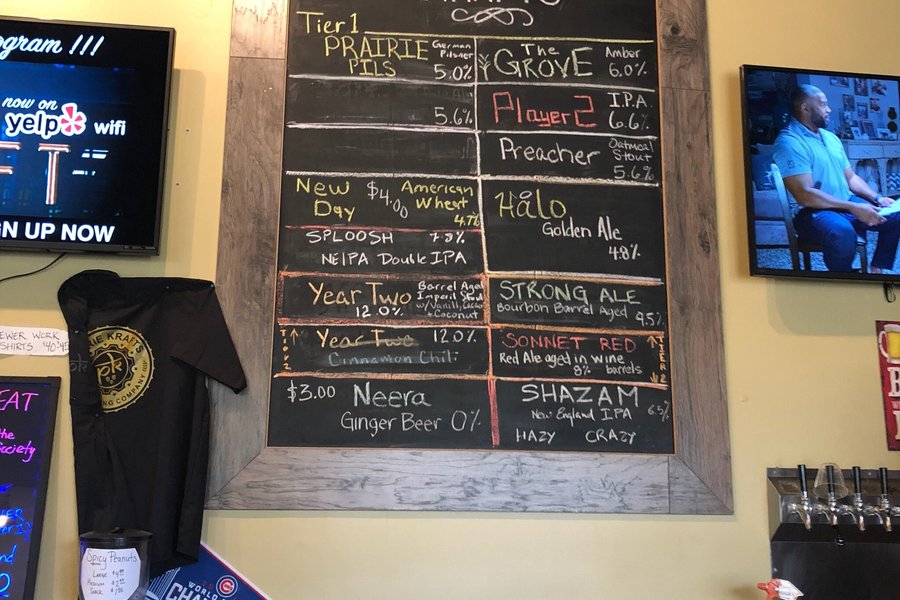 ogram !!!
now on
yelp wifi
GN UP NOW
Tier 1
PRAIRIE
PILS
German
Pilsner
5.0%
5.6%
New
Day
$4.00
American
Wheat
4.7%
SPLOOSH 7.8%
NEIPA Double IPA
Year Two
12.0%
Barrel Aged
Imperil Stout
w/Vanilla, Cacao
+ Coconut
Year Two 12.0%
Cinnamon Chili
$3.00 Neera
Ginger Beer 0%
The
GROVE
Amber
6.0%
Player 2
I.P.A.
6.6%
Preacher
Oatmeal
Stout
5.6%
Halo
Golden Ale
4.8%
STRONG ALE
Bourbon Barrel Aged 9.5%
SONNET RED
Red Ale aged in wine
8% barrels
SHAZAM
New England IPA 6.5%
HAZY CRAZY
EWER WORK
SHIRTS $40-$45
IE KRAFTS
pk
NG COMPANY
EAT
the
Society
Spicy Peanuts
Large
Medium
Snack
WORLD
CHA